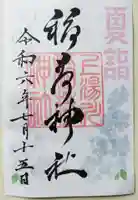 夏詣
稲荷神社
令和六年七月十五日